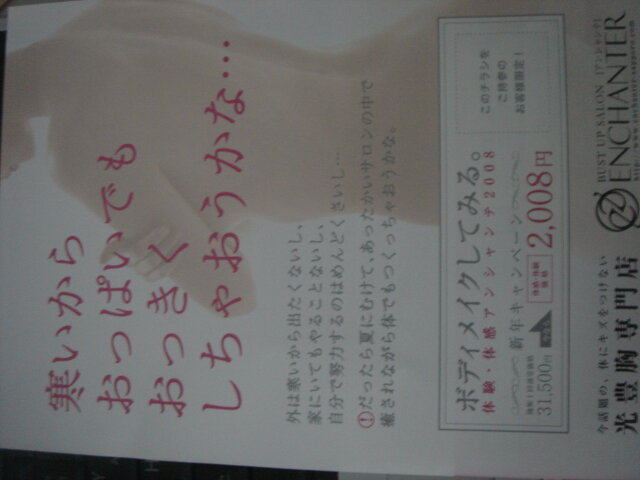 寒いから
おっぱいでも
おっきく
しちゃおうかな…
外は寒いから出たくないし、
家にいてもやることないし、
自分で努力するのはめんどくさいし…
①だったら夏にむけて、あったかいサロンの中で
癒されながら体でもつくっちゃおうかな。
ボディメイクしてみる。
体験・体感アンシャンテ2008
新年キャンペーン
31,500円
体感・体験
価格
2,008円
このチラシを
ご持参の
お客様限定!
今話題の、体にキズをつけない
光豊胸専門店
BUST UP SALON [アンシャンテ]
ENCHANTER